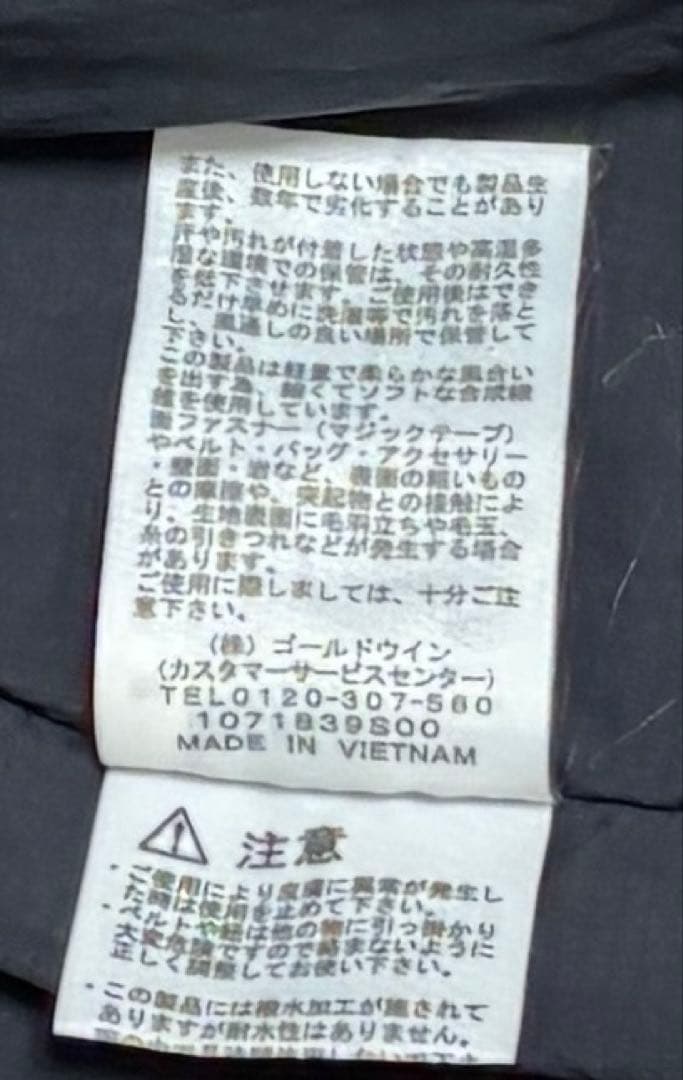 また、使用しない場合でも製品生
産後、数年で劣化することがあり
ます。
汗や汚れが付着した状態や高温多
湿な環境での保管は、その耐久性
を低下させます。ご使用後はでき
るだけ早めに洗濯等で汚れを落と
し、風通しの良い場所で保管して
下さい。
この製品は軽量で柔らかな風合い
を出す為、細くてソフトな合成繊
維を使用しています。
面ファスナー（マジックテープ）
やベルト・バッグ・アクセサリー
・壁面・岩など、表面の粗いもの
との摩擦や、突起物との接触によ
り、生地表面に毛羽立ちや毛玉、
糸の引きつれなどが発生する場合
があります。
ご使用に際しましては、十分ご注
意下さい。
（株）ゴールドウイン
(カスタマーサービスセンター)
TEL0120-307-560
1071839S00
MADE IN VIETNAM
注意
・ご使用により皮膚に異常が発生し
た時は使用を止めて下さい。
・ベルトや紐は他の物に引っ掛かり
大変危険ですので絡まないように
正しく調整してお使い下さい。
・この製品には撥水加工が施されて
ありますが耐水性はありません。